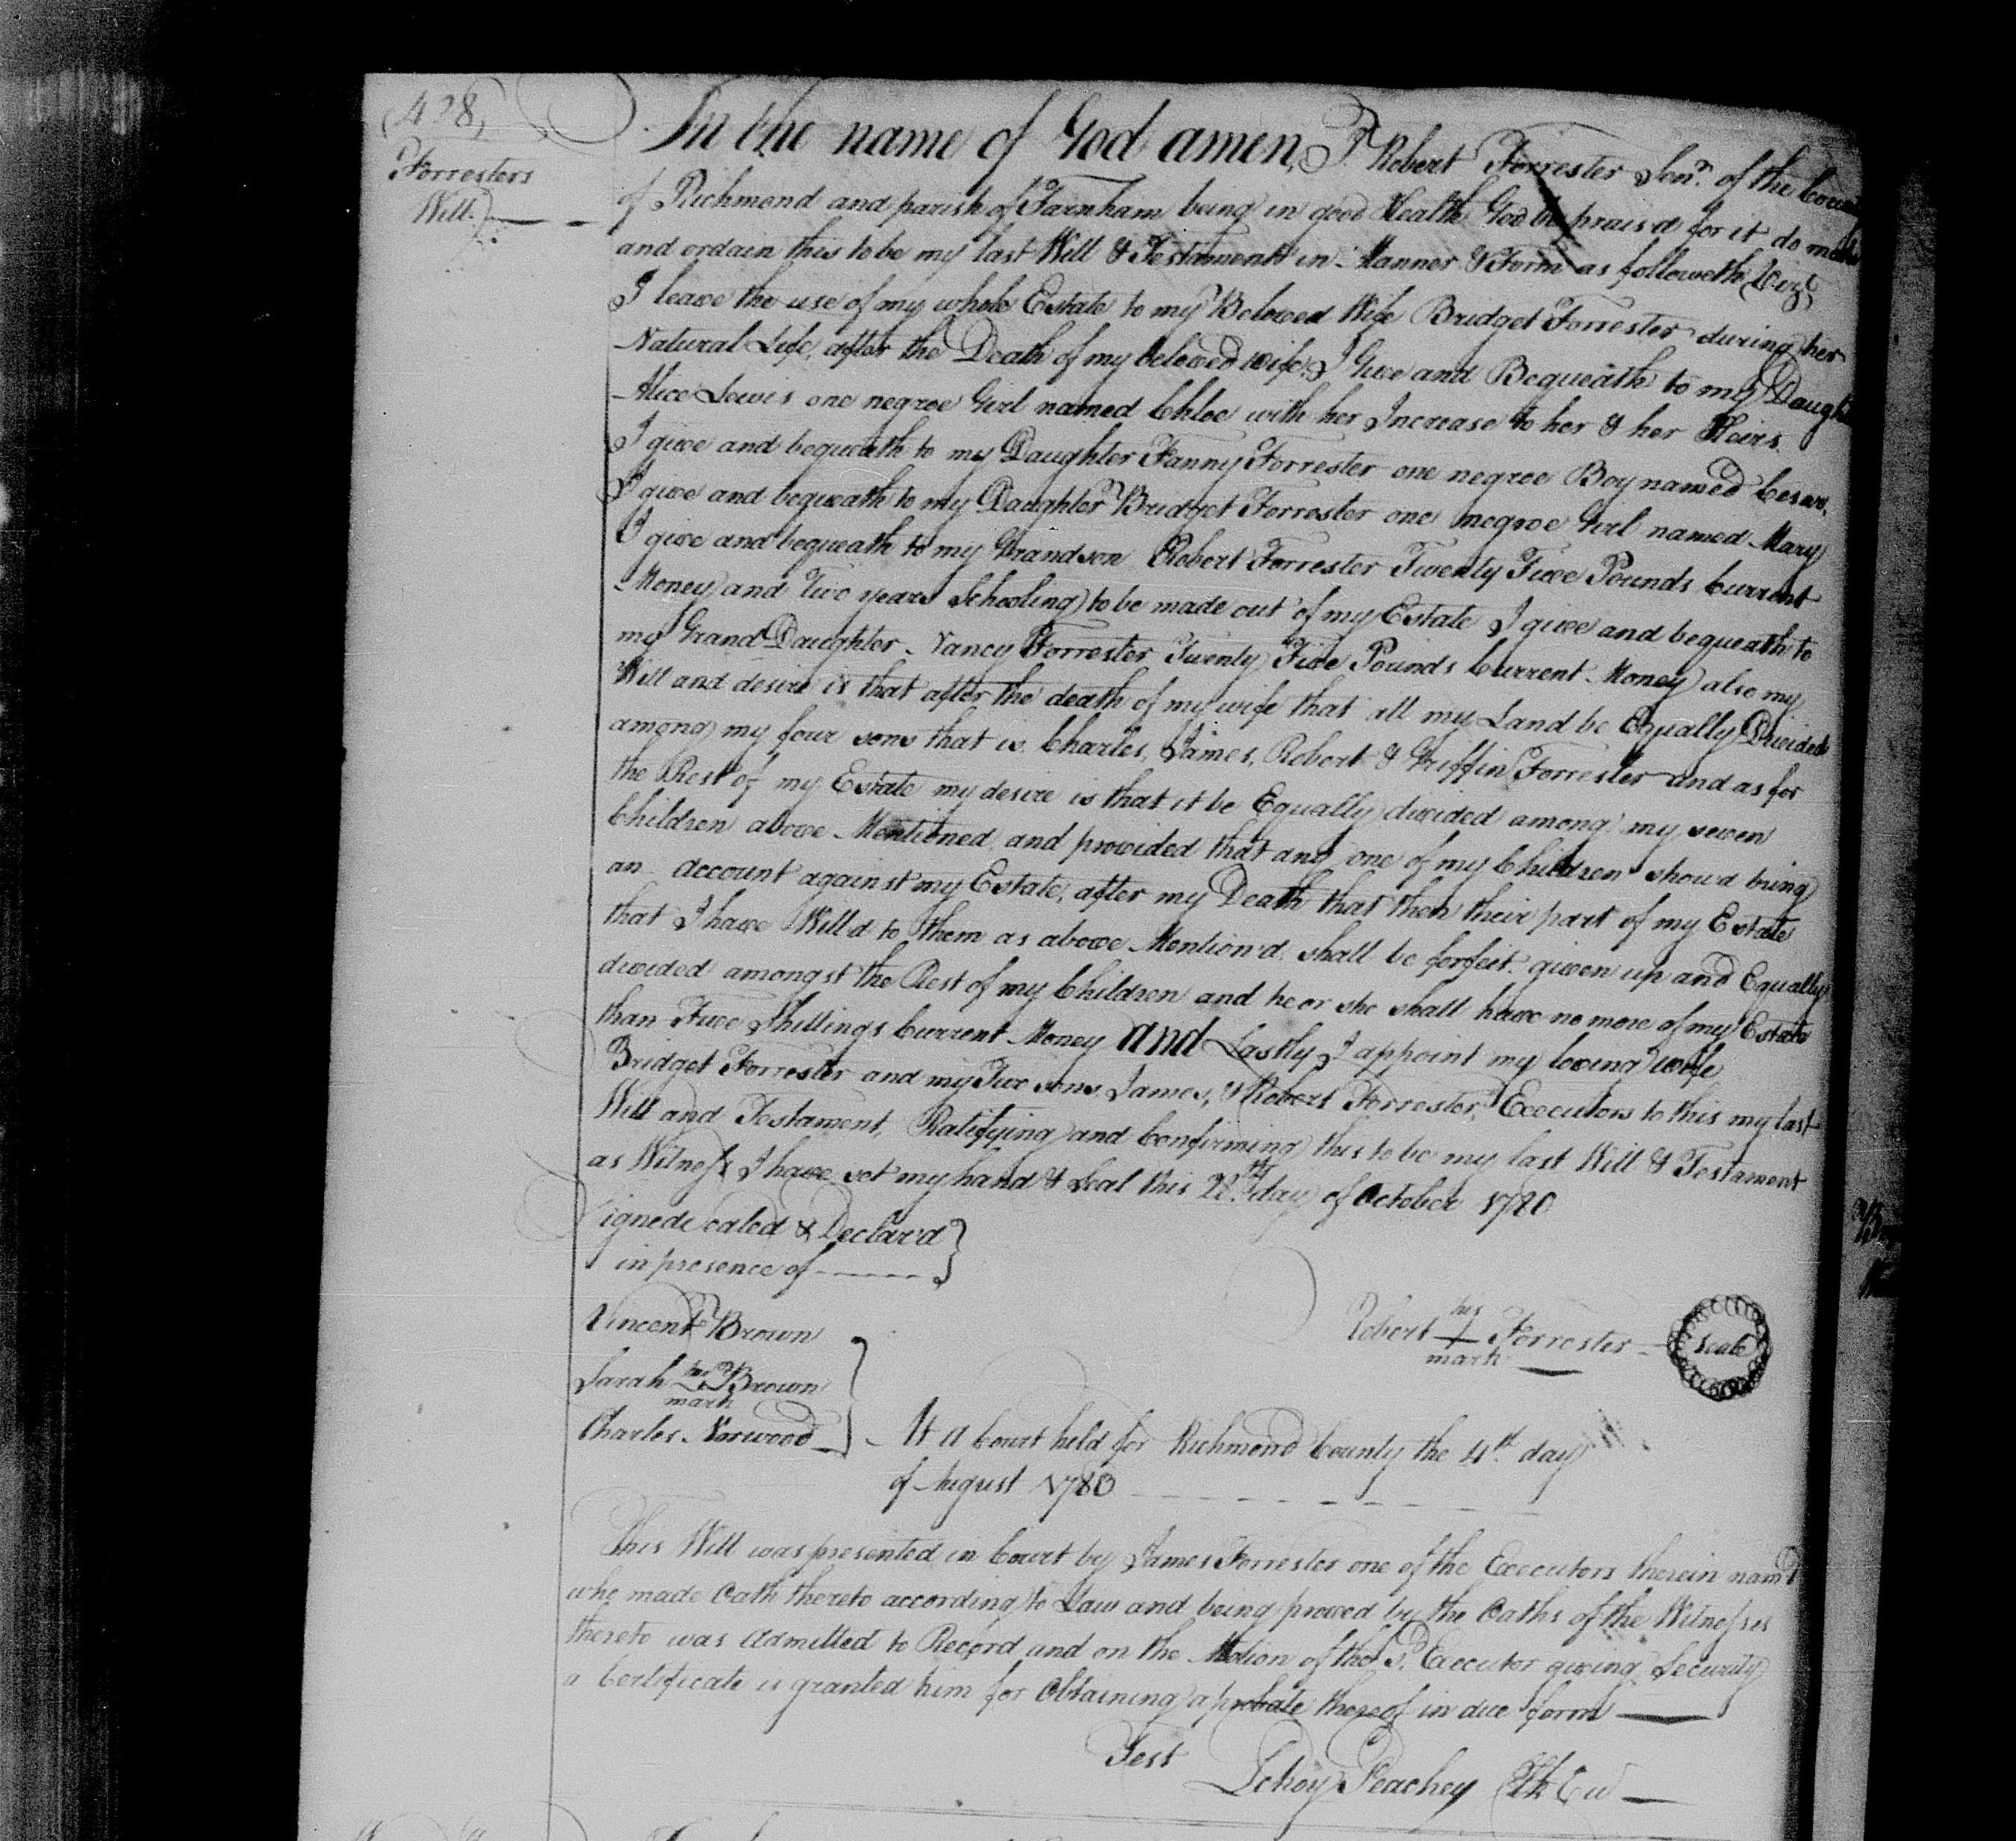 (428)
Forresters
Will.)
In the name of God amen, I Robert Forrester Senr. of the
of Richmond and parish of Farnham being in good Health God be prais'd for it do make
and ordain this to be my last Will & Testament in Manner & Form as followeth (Vizt)
I leave the use of my whole Estate to my Beloved Wife Bridget Forrester during her
Natural Life, after the Death of my beloved wife, I Give and Bequeath to my Daughter
Alice Lewis one negroe Girl named Chloe with her Increase to her & her Heirs.
I give and bequeath to my Daughter Fanny Forrester one negroe Boy named Cesar,
I give and bequeath to my Daughter Bridget Forrester one negroe Girl named Mary
I give and bequeath to my Grandson Robert Forrester Twenty Five Pounds Current
Money and Two years Schooling to be made out of my Estate I give and bequeath to
my Grand Daughter Nancy Forrester Twenty Five Pounds Current Money also my
Will and desire is that after the death of my wife that all my Land be Equally Divided
among my four sons that is Charles, James, Robert & Griffin Forrester and as for
the Rest of my Estate my desire is that it be Equally divided among my seven
Children above Mentioned, and provided that any one of my Children shou'd bring
an account against my Estate, after my Death that then their part of my Estate
that I have Will'd to them as above Mention'd shall be forfeit given up and Equally
divided amongst the Rest of my Children and he or she shall have no more of my Estate
than Five Shillings Current Money and Lastly I appoint my loving wife
Bridget Forrester and my Two sons James, & Robert Forrester, Executors to this my last
Will and Testament, Ratifying and Confirming this to be my last Will & Testament
as Witness I have set my hand & Seal this 28th day of October 1780
Signed Sealed & Declar'd
in presence of
Vincent Brown
Robert his + mark Forrester Seal
Sarah her mark Brown
Charles Norwood
At a Court held for Richmond County the 4th day
of August 1783
This Will was presented in Court by James Forrester one of the Executors therein nam'd
who made Oath thereto according to Law and being proved by the Oaths of the Witnesses
thereto was Admitted to Record and on the Motion of the sd. Executor giving Security
a Certificate is granted him for Obtaining a probate thereof in due form
Test
LeRoy Peachey Clk Cur